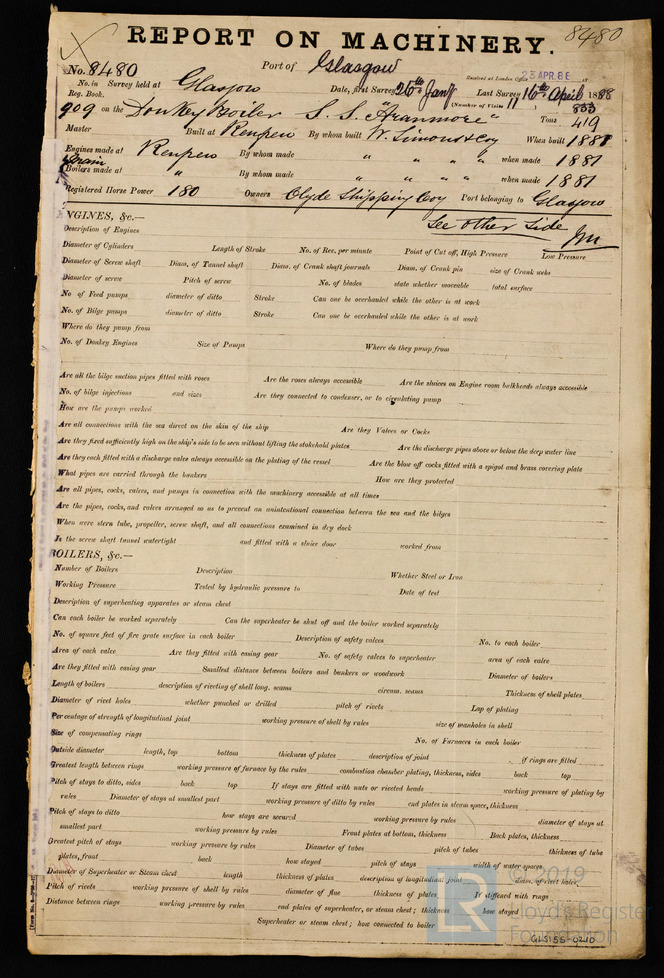 8480
REPORT ON MACHINERY.
No. 8480 Port of Glasgow
Received at London Office 23 APR. 88 18
No. in Survey held at Glasgow Date, first Survey 26th Jany Last Survey 16th April 1888
Reg. Book. (Number of Visits 11
909 on the Donkey Boiler S. S. "Aranmore" Tons 833
419
Master Built at Renfrew By whom built W. Simons & Coy When built 1881
Engines made at Renfrew By whom made " " " " when made 1881
Main
Boilers made at " By whom made " " " " when made 1881
Registered Horse Power 180 Owners Clyde Shipping Coy Port belonging to Glasgow
ENGINES, &c.—
See other Side
Description of Engines
Diameter of Cylinders Length of Stroke No. of Rev. per minute Point of Cut off, High Pressure Low Pressure
Diameter of Screw shaft Diam. of Tunnel shaft Diam. of Crank shaft journals Diam. of Crank pin size of Crank webs
Diameter of screw Pitch of screw No. of blades state whether moveable total surface
No. of Feed pumps diameter of ditto Stroke Can one be overhauled while the other is at work
No. of Bilge pumps diameter of ditto Stroke Can one be overhauled while the other is at work
Where do they pump from
No. of Donkey Engines Size of Pumps Where do they pump from
Are all the bilge suction pipes fitted with roses Are the roses always accessible Are the sluices on Engine room bulkheads always accessible
No. of bilge injections and sizes Are they connected to condenser, or to circulating pump
How are the pumps worked
Are all connections with the sea direct on the skin of the ship Are they Valves or Cocks
Are they fixed sufficiently high on the ship's side to be seen without lifting the stokehold plates Are the discharge pipes above or below the deep water line
Are they each fitted with a discharge valve always accessible on the plating of the vessel Are the blow off cocks fitted with a spigot and brass covering plate
What pipes are carried through the bunkers How are they protected
Are all pipes, cocks, valves, and pumps in connection with the machinery accessible at all times
Are the pipes, cocks, and valves arranged so as to prevent an unintentional connection between the sea and the bilges
When were stern tube, propeller, screw shaft, and all connections examined in dry dock
Is the screw shaft tunnel watertight and fitted with a sluice door worked from
BOILERS, &c.—
Number of Boilers Description Whether Steel or Iron
Working Pressure Tested by hydraulic pressure to Date of test
Description of superheating apparatus or steam chest
Can each boiler be worked separately Can the superheater be shut off and the boiler worked separately
No. of square feet of fire grate surface in each boiler Description of safety valves No. to each boiler
Area of each valve Are they fitted with easing gear No. of safety valves to superheater area of each valve
Are they fitted with easing gear Smallest distance between boilers and bunkers or woodwork Diameter of boilers
Length of boilers description of riveting of shell long. seams circum. seams Thickness of shell plates
Diameter of rivet holes whether punched or drilled pitch of rivets Lap of plating
Percentage of strength of longitudinal joint working pressure of shell by rules size of manholes in shell
Size of compensating rings No. of Furnaces in each boiler
Outside diameter length, top bottom thickness of plates description of joint if rings are fitted
Greatest length between rings working pressure of furnace by the rules combustion chamber plating, thickness, sides back top
Pitch of stays to ditto, sides back top If stays are fitted with nuts or riveted heads working pressure of plating by
rules Diameter of stays at smallest part working pressure of ditto by rules end plates in steam space, thickness
Pitch of stays to ditto how stays are secured working pressure by rules diameter of stays at
smallest part working pressure by rules Front plates at bottom, thickness Back plates, thickness
Greatest pitch of stays working pressure by rules Diameter of tubes pitch of tubes thickness of tube
plates, front back how stayed pitch of stays width of water spaces
Diameter of Superheater or Steam chest length thickness of plates description of longitudinal joint diam. of rivet holes
Pitch of rivets working pressure of shell by rules diameter of flue thickness of plates If stiffened with rings
Distance between rings working pressure by rules end plates of superheater, or steam chest; thickness how stayed
Superheater or steam chest; how connected to boiler
LR © 2019
Lloyd's Register
Foundation
GLS155-0210